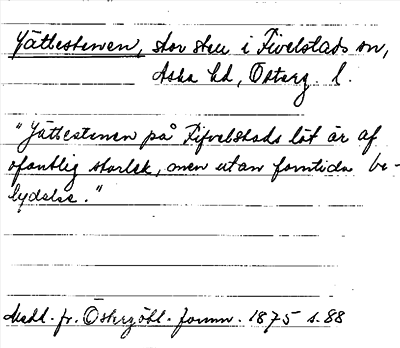 Jättestenen, stor sten i Fivelstads sn,
Aska hd, Österg. l.
"Jättestenen på Fifvelstads löt är af
ofantlig storlek, men utan forntida be-
tydelse."
Medd. fr. Östergötl. fornm. 1875 s. 88